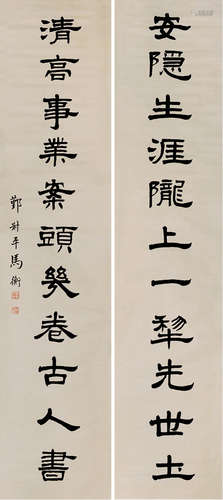 安隱生涯隴上一犂先世土
清高事業案頭幾卷古人書
鄞叔平馬衡